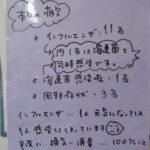 本日の病欠
* インフルエンザ：11名
内1名は溶連菌
同時感染です。
* 溶連菌感染症：1名
* 風邪症状：3名
インフルエンザ‥1人元気になっては
1人感染してしまっています
室温に換気・消毒…100%に